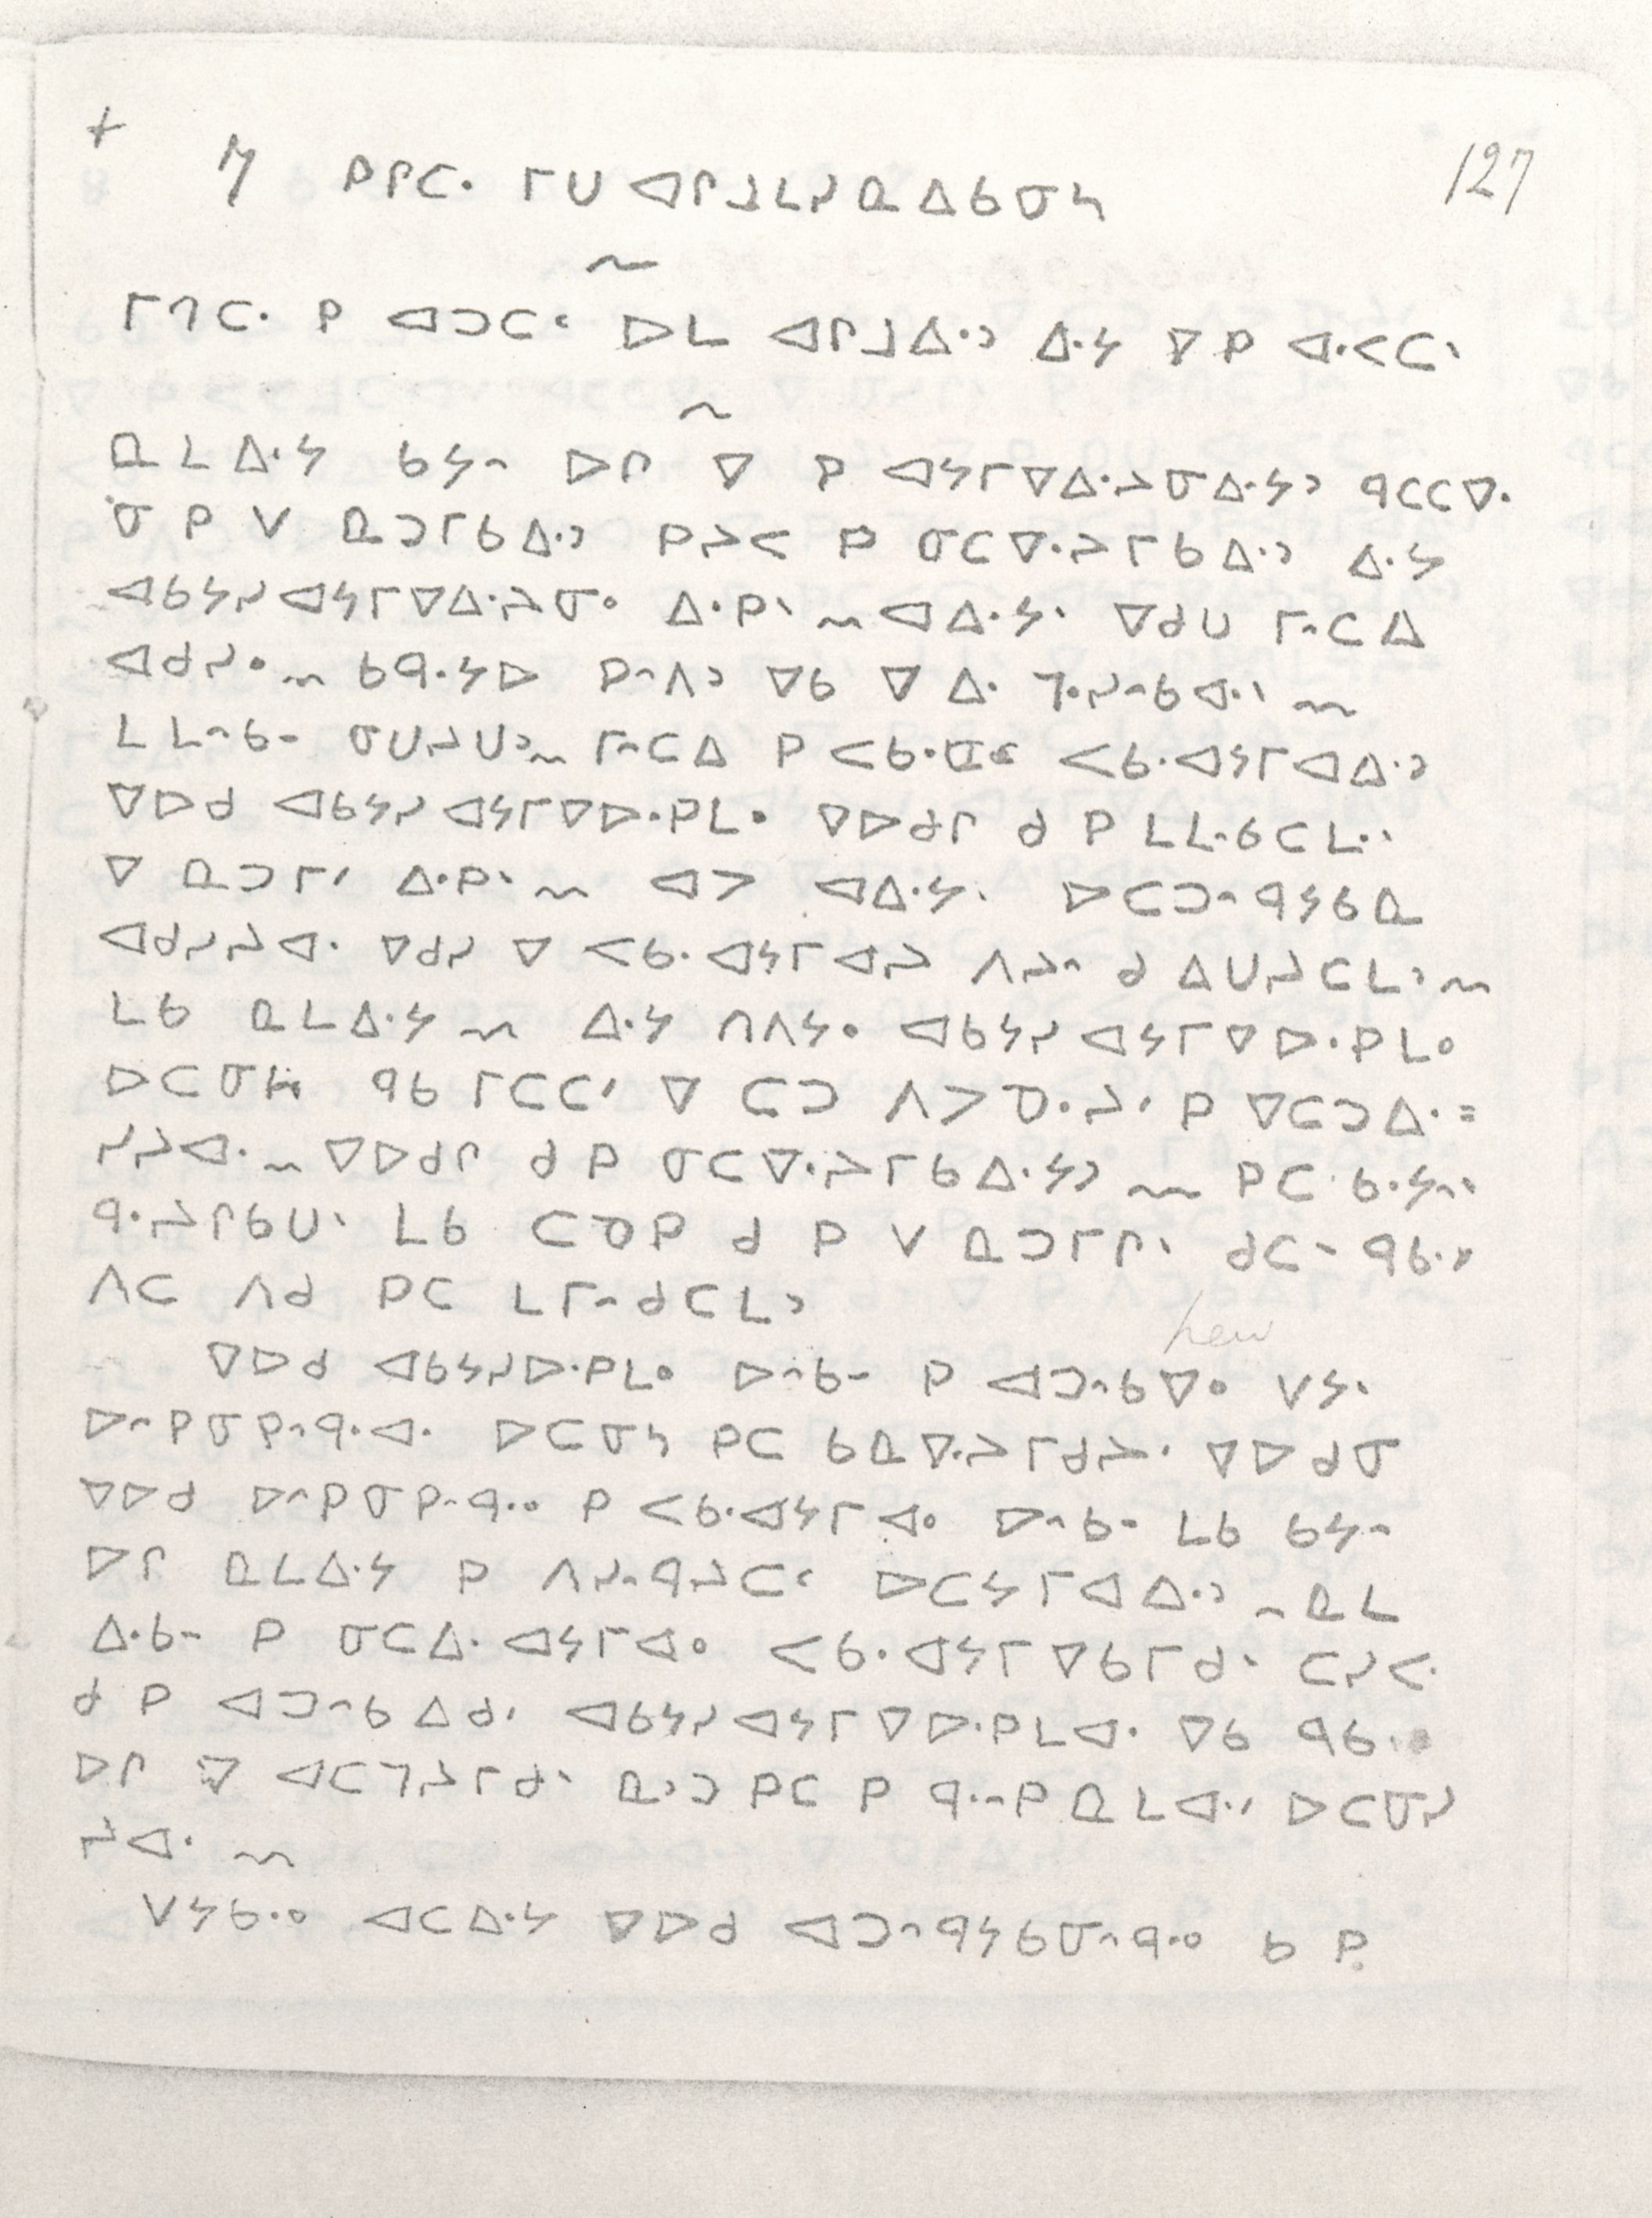 +
7 ᑭᒋᑕᐧ ᒥᑌ ᐊᒋᒧᒪᓯᓇ ᐃᑲᓂᔭ 127
ᒥᒉᑕᐧ ᑭ ᐊᑐᑕᑉ ᐅᒪ ᐊᒋᒧᐃᐧᐣ ᐃᐧᔭ ᐁᑭ ᐊᐧᐸᑕᐠ
ᓇᒪᐃᐧᔭ ᑲᔭᐢ ᐅᒋ ᐁ ᑭ ᐊᔭᒥᐁᐃᐧᔨᓂᐃᐧᔭᐣ ᑫᑕᑕᐁᐧ
ᓂ ᑭ ᐯ ᓇᑐᒥᑲᐃᐧᐣ ᑭᔨᐸ ᑭ ᓂᑕᐁᐧᔨᒥᑲᐃᐧᐣ ᐃᐧᔭ
ᐊᑲᔭᓯ ᐊᔭᒥᐁᐃᐧᔨᓂᐤ ᐃᐧᑭᐠ ᐊᐃᐧᔭᐠ ᐁᑯᑌ ᒥᐢᑕᐃ
ᐊᑯᓯᐤ ᑲᑫᐧᔭᐅ ᑭᐢᐱᐣ ᐁᑲ ᐁ ᐃᐧ ᒉᐧᓯᐢᑲᐊᐧᐠ
ᒪᒪᐢᑲᐨ ᓂᑌᔨᑌᐣ ᒥᐢᑕᐃ ᑭ ᐸᑲᐧᓇᑉ ᐸᑲᐧᐊᔭᒥᐊᐃᐧᐣ
ᐁᐅᑯ ᐊᑲᔭᓯ ᐊᔭᒥᐁᐅᐧᑭᒪᐤ ᐁᐅᑯᒋ ᑯ ᑭ ᒪᒪᐢᑲᑕᒪᐧᐠ
ᐁ ᓇᑐᒥᐟ ᐃᐧᑭᐠ ᐊᐳ ᐊᐃᐧᔭᐠ ᐅᑕᑐᐢᑫᔭᑲᓇ
ᐊᑯᓯᔨᐊᐧ ᐁᑯᓯ ᐁ ᐸᑲᐧᐊᔭᒥᐊᔨ ᐱᔨᐢ ᑯ ᐃᑌᔨᑕᒪᐣ
ᒪᑲ ᓇᒪᐃᐧᔭ ᐃᐧᔭ ᑎᐱᔭᐤ ᐊᑲᔭᓯ ᐊᔭᒥᐁᐅᐧᑭᒪᐤ
ᐅᑕᓂᓴ ᑫᑲ ᒥᑕᑕᐟ ᐁ ᑕᑐ ᐱᐳᓀᐧᔨᐟ ᑭ ᐁᑕᑐᐃᐧ=
ᓯᔨᐊᐧ ᐁᐅᑯᒋ ᑯ ᑭ ᓂᑕᐁᐧᔨᒥᑲᐃᐧᔭᐣ ᑭᑕ ᑲᐧᔭᐢᐠ
ᑫᐧᔨᒋᑲᑌᐠ ᒪᑲ ᑕᓀᑭ ᑯ ᑭ ᐯ ᓇᑐᒥᒋᐠ ᑯᑕᐠ ᑫᑲᐧᕀ
ᐱᑕ ᐱᑯ ᑭᑕ ᒪᒥᐢᑯᑕᒪᐣ
hew
ᐁᐅᑯ ᐊᑲᔭᓯᐅᐧᑭᒪᐤ ᐅᐢᑲᐨ ᑭ ᐊᑐᐢᑲᐁᐤ ᐯᔭᐠ
ᐅᐢᑭᓂᑭᐢᑫᐧᐊᐧ ᐅᑕᓂᓴ ᑭᑕ ᑲᓇᐁᐧᔨᒥᑯᔨᐟ ᐁᐅᑯᓂ
ᐁᐅᑯ ᐅᐢᑭᓂᑭᐢᑫᐧᐤ ᑭ ᐸᑲᐧᐊᔭᒥᐊᐤ ᐅᐢᑲᐨ ᒪᑲ ᑲᔭᐢ
ᐅᒋ ᓇᒪᐃᐧᔭ ᑭ ᐱᓯᐢᑫᔨᑕᑉ ᐅᑕᔭᒥᐊᐃᐧᐣ ᐢᓇᒪ
ᐃᐧᑲᐨ ᑭ ᓂᑕᐃᐧ ᐊᔭᒥᐊᐤ ᐸᑲᐧᐊᔭᒥᐁᑲᒥᑯᐠ ᑕᓯᐸᐧ
ᑯ ᑭ ᐊᑐᐢᑲᐃᑯᐟ ᐊᑲᔭᓯ ᐊᔭᒥᐁᐅᐧᑭᒪᐊᐧ ᐁᑲ ᑫᑲᐧᐤ
ᐅᒋ ᐁ ᐊᑕᒉᔨᒥᑯᐠ ᓇᐣᑐ ᑭᑕ ᑭ ᑫᐧᐢᑭᓇᒪᐊᐧᐟ ᐅᑕᓂᓯ
ᔨᐊᐧ
ᐯᔭᑲᐧᐤ ᐊᑕᐃᐧᔭ ᐁᐅᑯ ᐊᑐᐢᑫᔭᑲᓂᐢᑫᐧᐤ ᑲ ᑭ